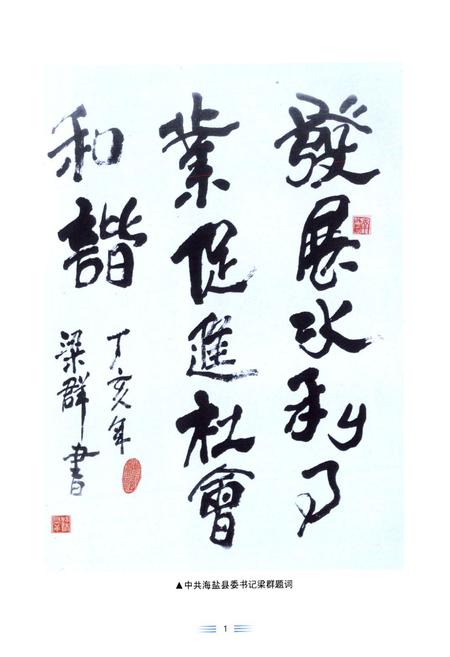 發展水利事
業促進社會
和諧
丁亥年
梁群書
▲中共海盐县委书记梁群题词
1